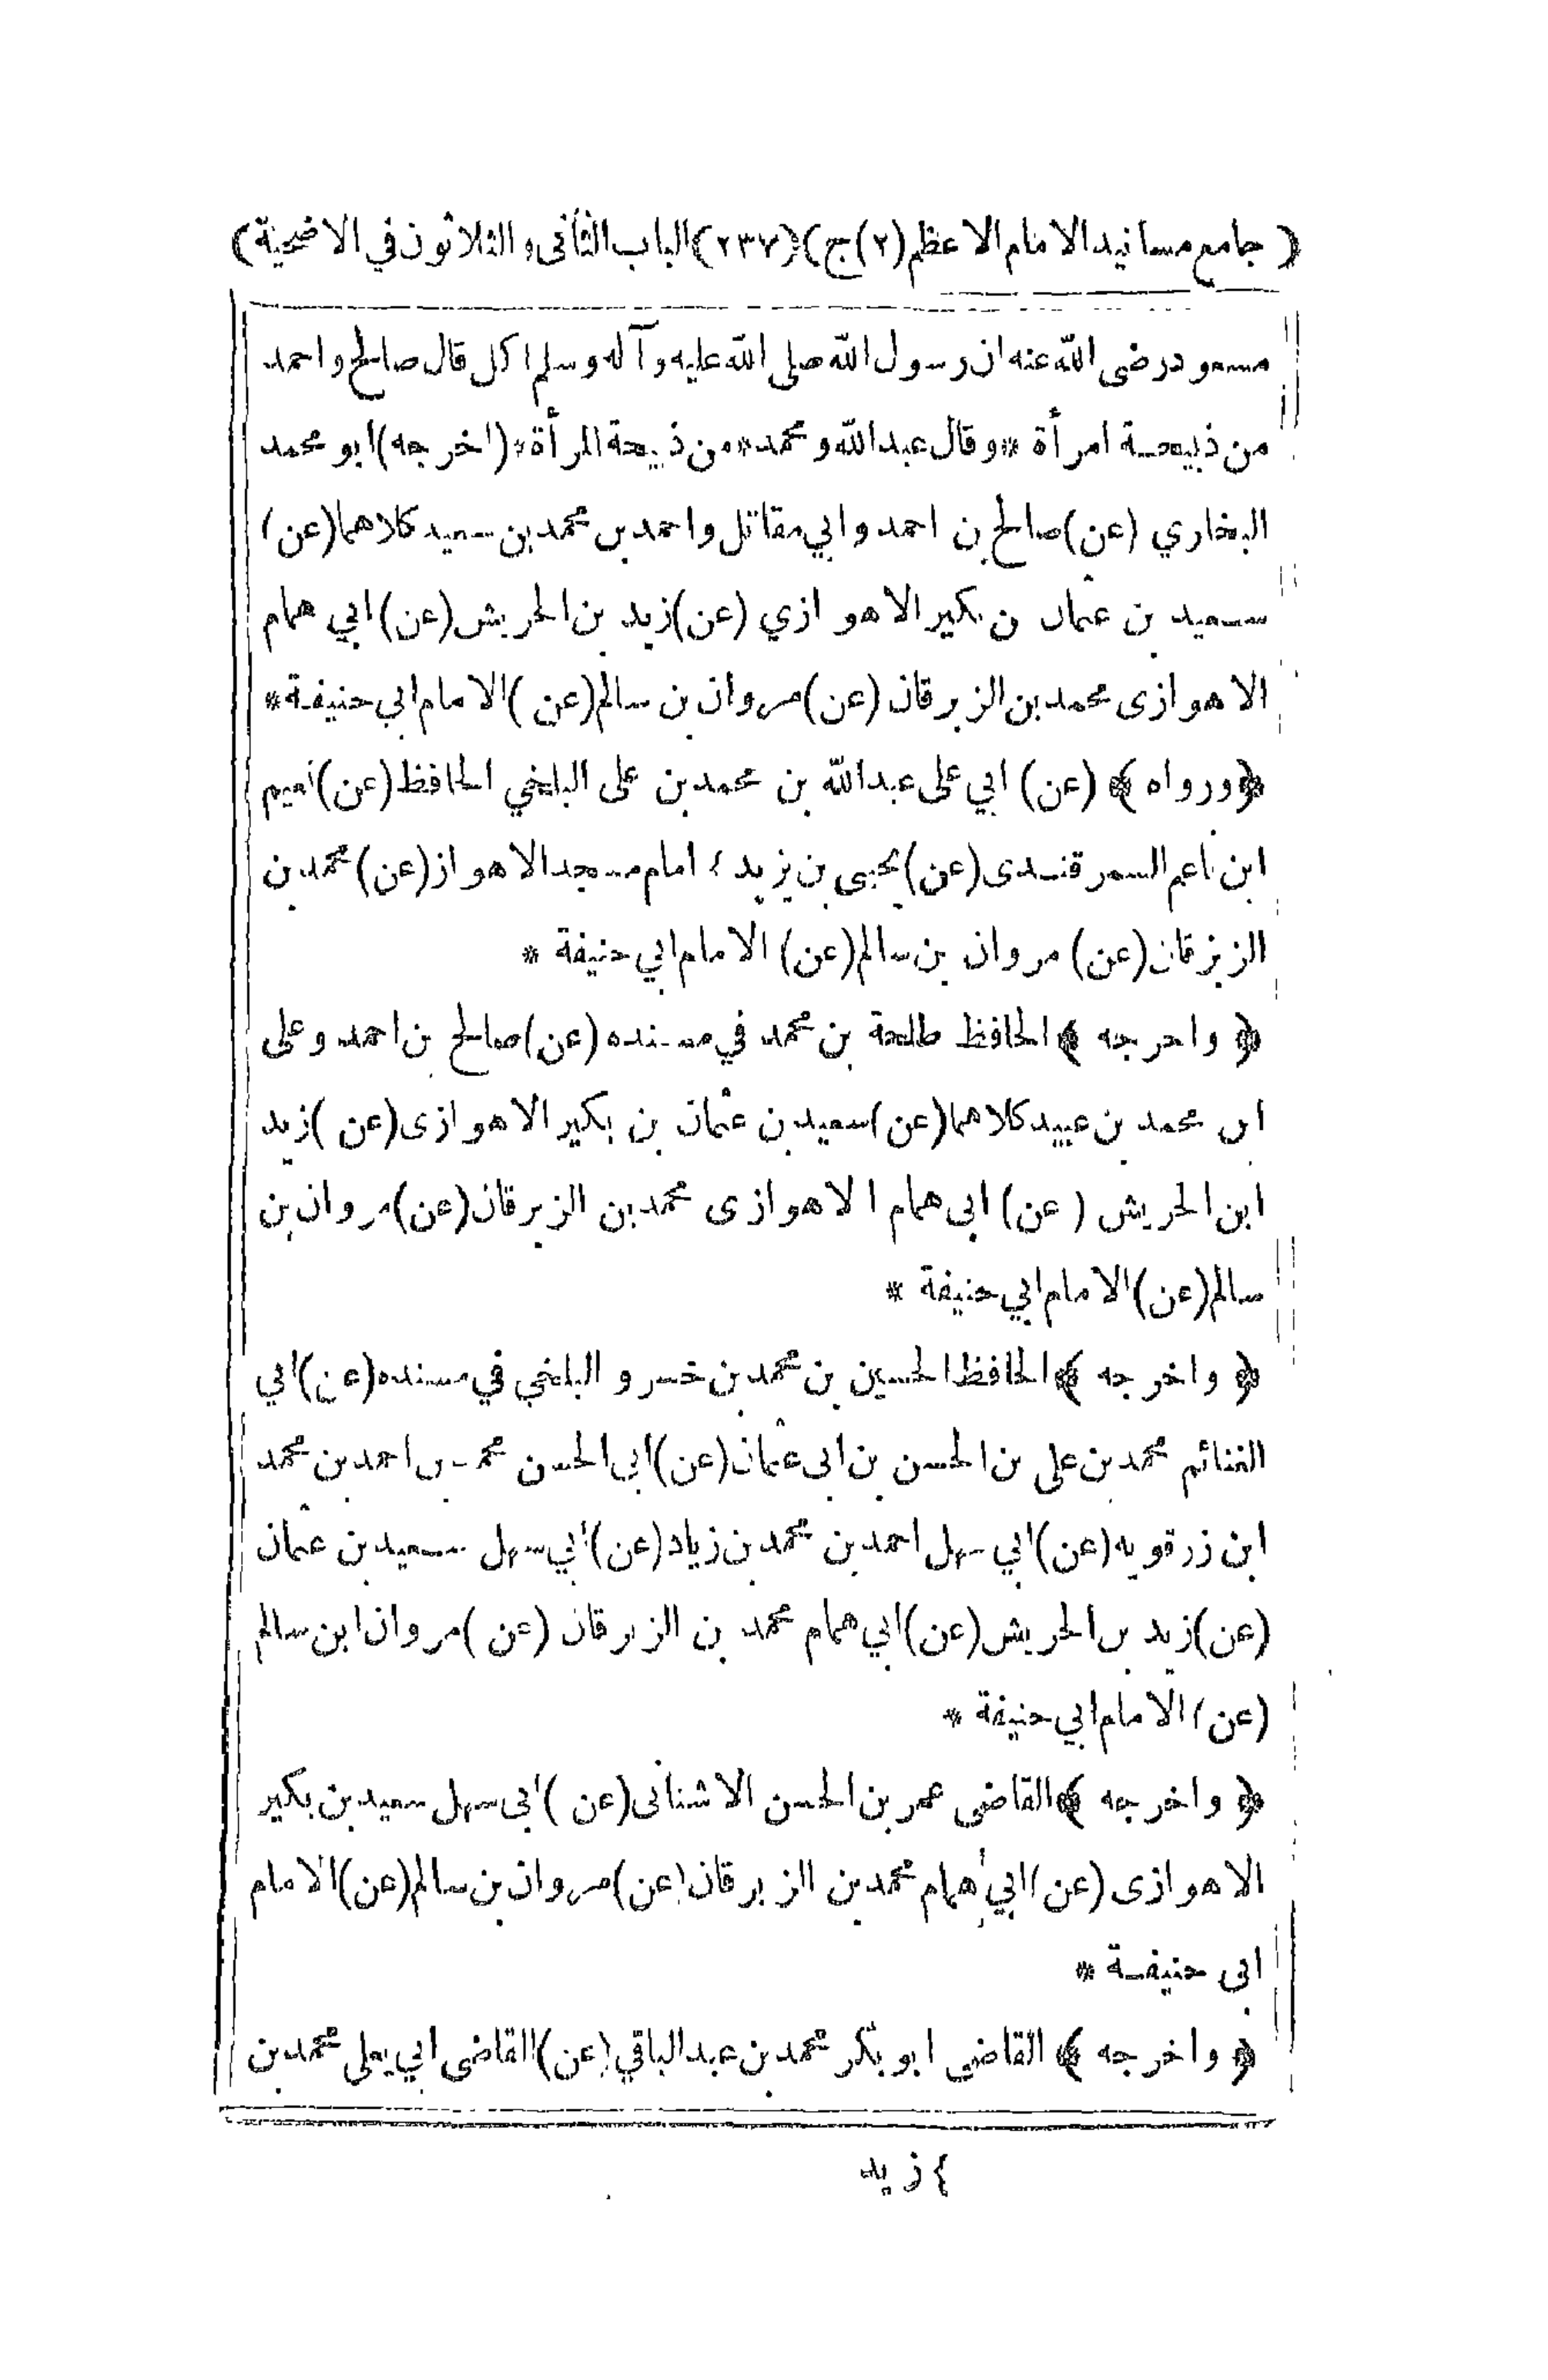 ( جامع مسانيد الامام الاعظم (٢) ج ) (٢٣٧) الباب الثانى والثلاثون في الاضحية )
مسعود رضى الله عنه ان رسول الله صلى الله عليه وآله وسلم اكل قال صالح واحمد
من ذبيحة امرأة * وقال عبدالله ومحمد * من ذبيحة المرأة * (اخرجه) ابو محمد
البخاري (عن) صالح بن احمد وابي مقاتل واحمد بن محمد بن سعيد كلاهما (عن)
سعيد بن عثمان بن بكير الاهوازي (عن) زيد بن الحريش (عن) ابي همام
الاهوازى محمد بن الزبرقان (عن) مروان بن سالم (عن) الامام ابي حنيفة *
﴿ ورواه ﴾ (عن) ابي على عبدالله بن محمد بن على البلخي الحافظ (عن)
ابن ناعم السمرقندى (عن) يحيى بن يزيد ؛ امام مسجد الاهواز (عن) محمد بن
الزبرقان (عن) مروان بن سالم (عن) الامام ابي حنيفة *
﴿ واخرجه ﴾ الحافظ طلحة بن محمد في مسنده (عن) صالح بن احمد وعلى
ابن محمد بن عبيد كلاهما (عن) سعيد بن عثمان بن بكير الاهوازى (عن) زيد
ابن الحريش (عن) ابي همام الاهوازى محمد بن الزبرقان (عن) مروان بن
سالم (عن) الامام ابي حنيفة *
﴿ واخرجه ﴾ الحافظ الحسين بن محمد بن خسرو البلخي في مسنده (عن) ابي
الغنائم محمد بن على بن الحسن بن ابى عثمان (عن) ابي الحسن محمد بن احمد بن محمد
ابن زرقويه (عن) ابي سهل احمد بن محمد بن زياد (عن) ابي سهل سعيد بن عثمان
(عن) زيد بن الحريش (عن) ابي همام محمد بن الزبرقان (عن) مروان ابن سالم
(عن) الامام ابي حنيفة *
﴿ واخرجه ﴾ القاضى عمر بن الحسن الاشنانى (عن) ابى سهل سعيد بن بكير
الاهوازى (عن) ابي همام محمد بن الزبرقان (عن) مروان بن سالم (عن) الامام
ابى حنيفة *
﴿ واخرجه ﴾ القاضى ابو بكر محمد بن عبدالباقي (عن) القاضى ابي يعلى محمد بن
؛ زيد